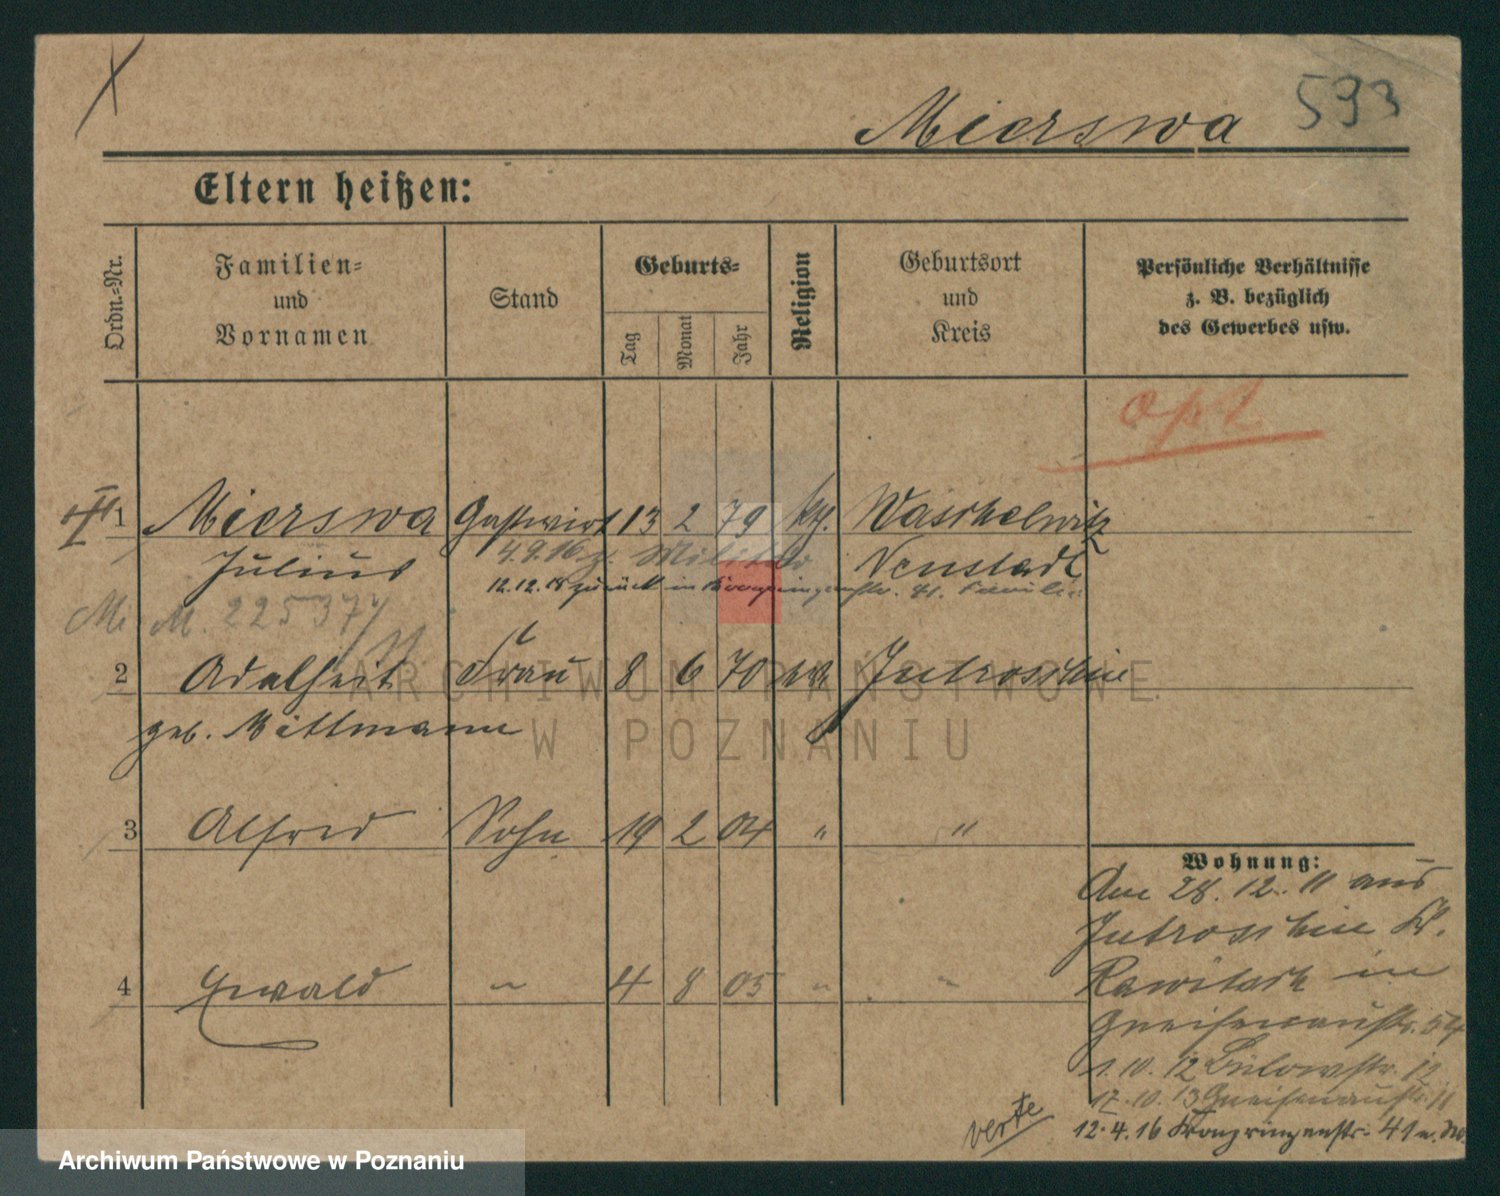 Mierswa 593
Eltern heißen:
Ordn.-Nr.
Familien-
und
Vornamen
Stand
Geburts-
Tag
Monat
Jahr
Religion
Geburtsort
und
Kreis
Persönliche Verhältnisse
z. B. bezüglich
des Gewerbes usw.
opt
II
1 Mierswa Gastwirt 13 2 79 Waschelwitz
Julius 4.9.16 z. Militär Neustadt
12.12.18 zurück in Kronprinzenstr. 41. Familie
M. 225377
2 Adalheit Frau 8 6 70 Jutroschin
geb. Mittmann
3 Alfred Sohn 19 2 04 " "
4 Ewald " 4 8 05 " "
Wohnung:
Am 28.12.11 aus
Jutroschin Kr.
Rawitsch in
Gneisenaustr. 54
1.10.12 Bülowstr.
17.10.13 Gneisenaustr. 11
12.4.16 Kronprinzenstr. 41
verte
ARCHIWUM PAŃSTWOWE
W POZNANIU
Archiwum Państwowe w Poznaniu